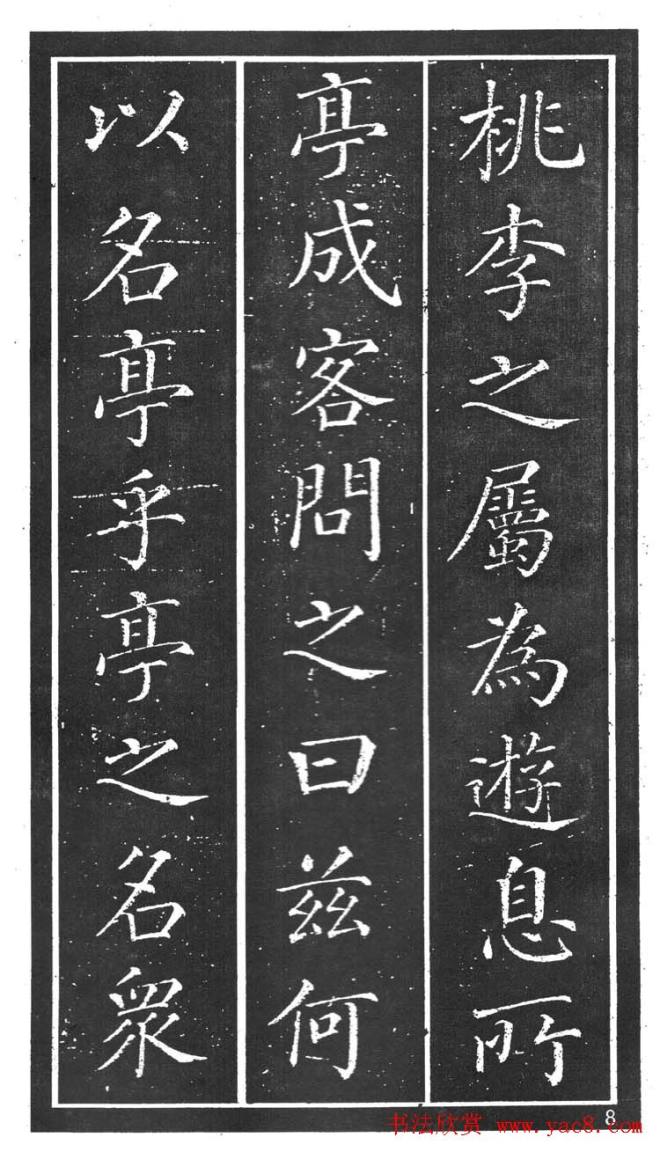 桃李之屬為遊息所
亭成客問之曰兹何
以名亭乎亭之名衆
8
书法欣赏 www.yac8.com